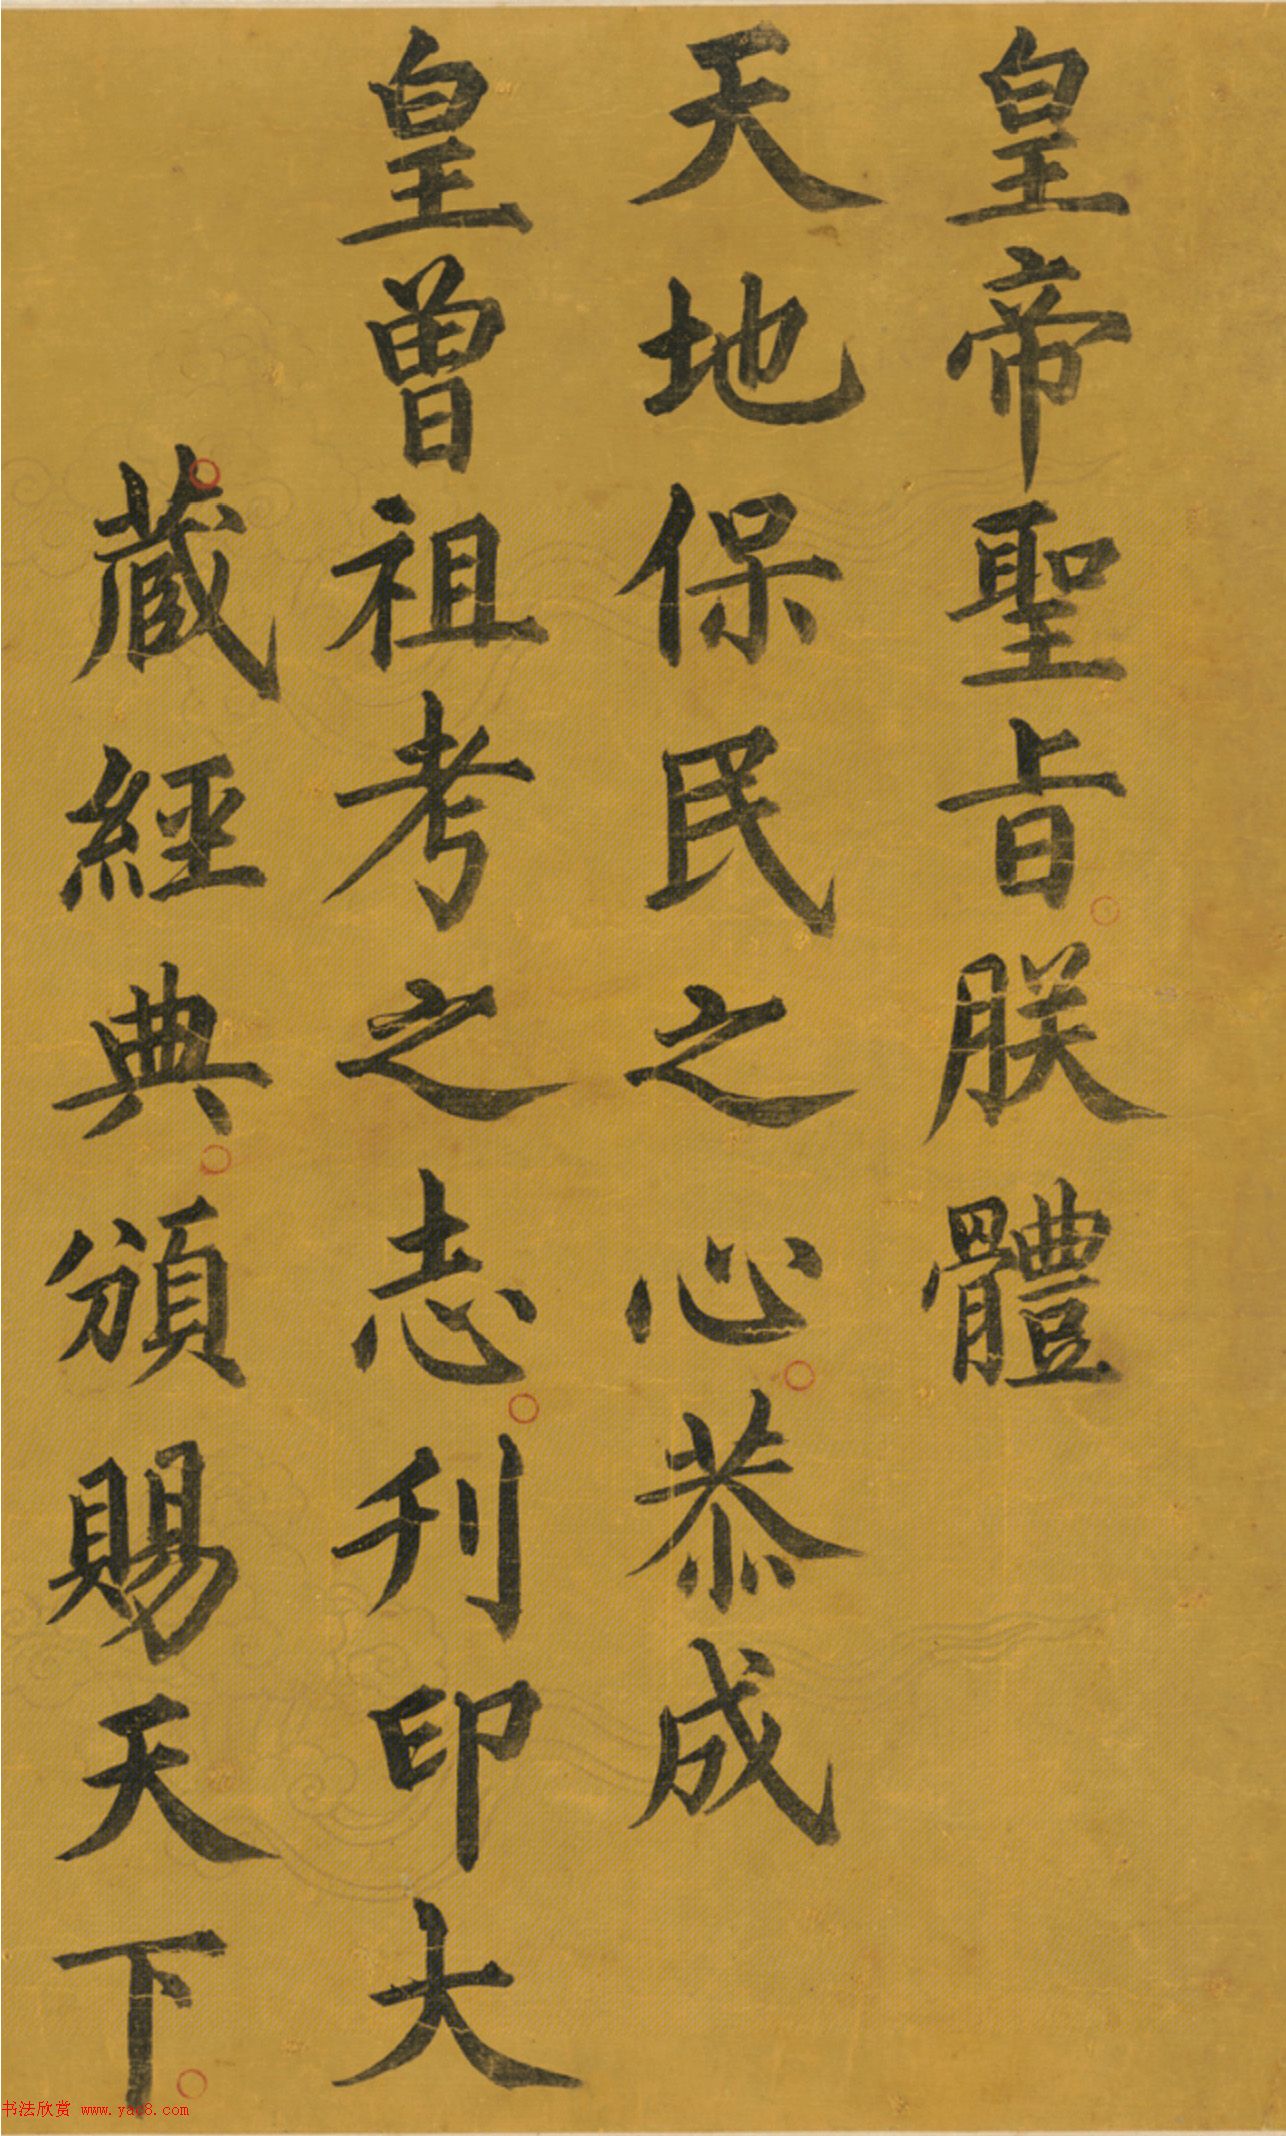 皇帝聖旨朕體
天地保民之心恭成
皇曾祖考之志刊印大
藏經典頒賜天下
书法欣赏 www.yac8.com